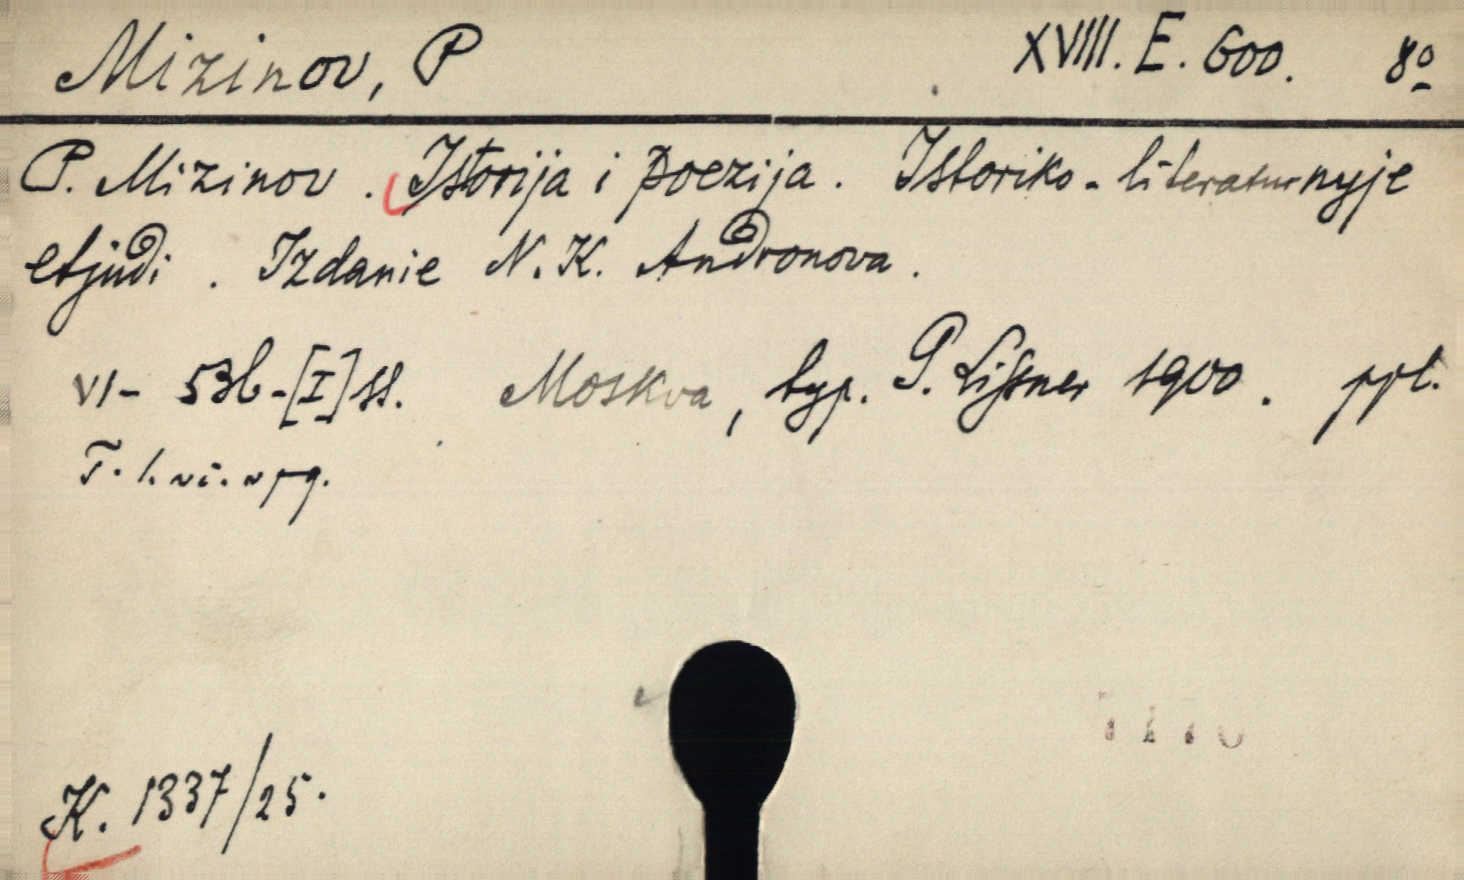 Mizinov, P XVIII. E. 600. 8º
P. Mizinov. Istorija i poezija. Istoriko-literaturnyje
etjudi. Izdanie N. K. Andronova.
VI- 536-[I] ss. Moskva, typ. G. Lissner 1900. ppl.
K. 1337/25.